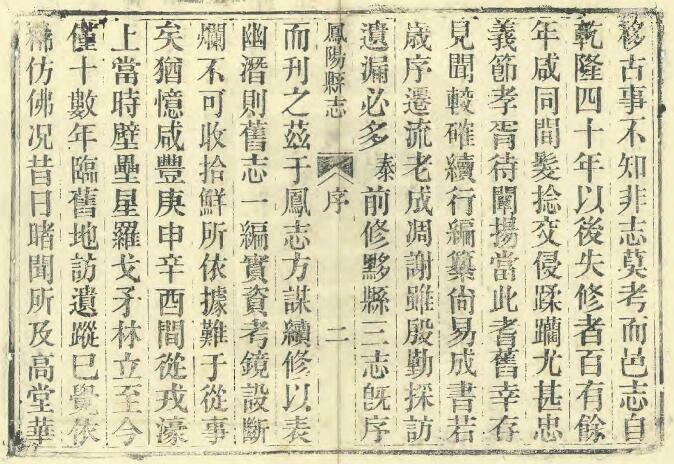 移古事不知非志莫考而邑志自
乾隆四十年以後失修者百有餘
年咸同間髮捻交侵蹂躪尤甚忠
義節孝胥待闡揚當此耆舊幸存
見聞較確續行編纂尙易成書若
歲序遷流老成凋謝雖殷勤採訪
遺漏必多泰前修黟縣三志旣序
鳳陽縣志 序 二
而刊之茲于鳳志方謀續修以表
幽潛則舊志一編實資考鏡設斷
爛不可收拾鮮所依據難于從事
矣猶憶咸豐庚申辛酉間從戎濠
上當時壁壘星羅戈矛林立至今
僅十數年臨舊地訪遺蹤已覺依
稀仿佛况昔日睹聞所及高堂華